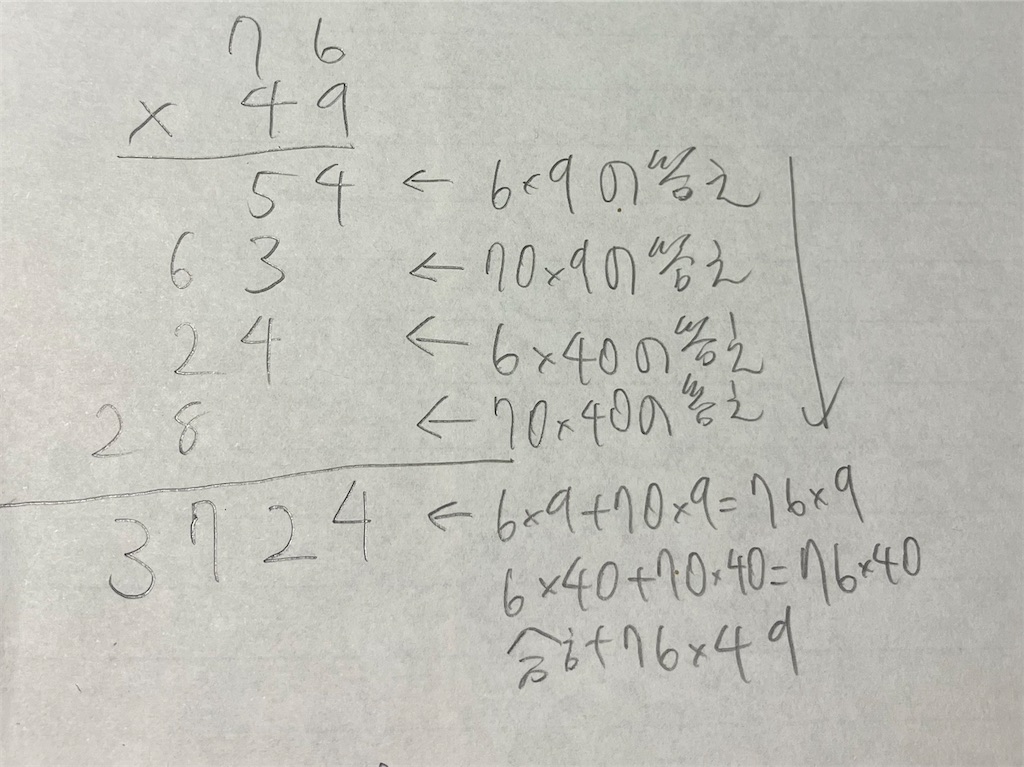 76
× 49
54 ← 6×9の答え
63 ← 70×9の答え
24 ← 6×40の答え
28 ← 70×40の答え
3724 ← 6×9+70×9=76×9
6×40+70×40=76×40
合計76×49